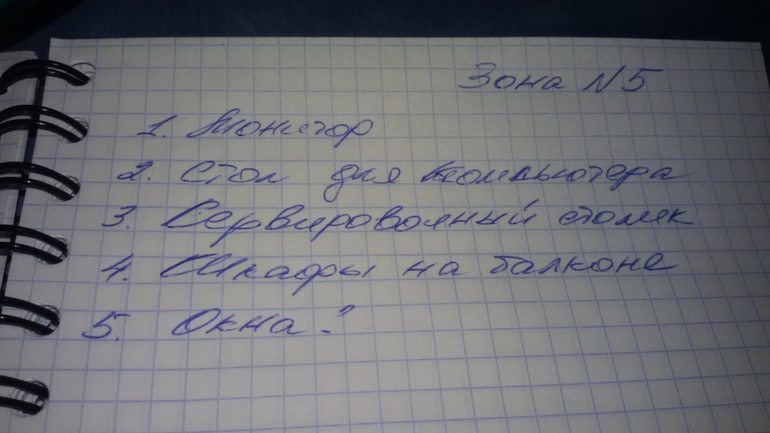 Зона N5
1. Монитор
2. Стол для компьютера
3. Сервировочный столик
4. Шкафы на балконе
5. Окна?